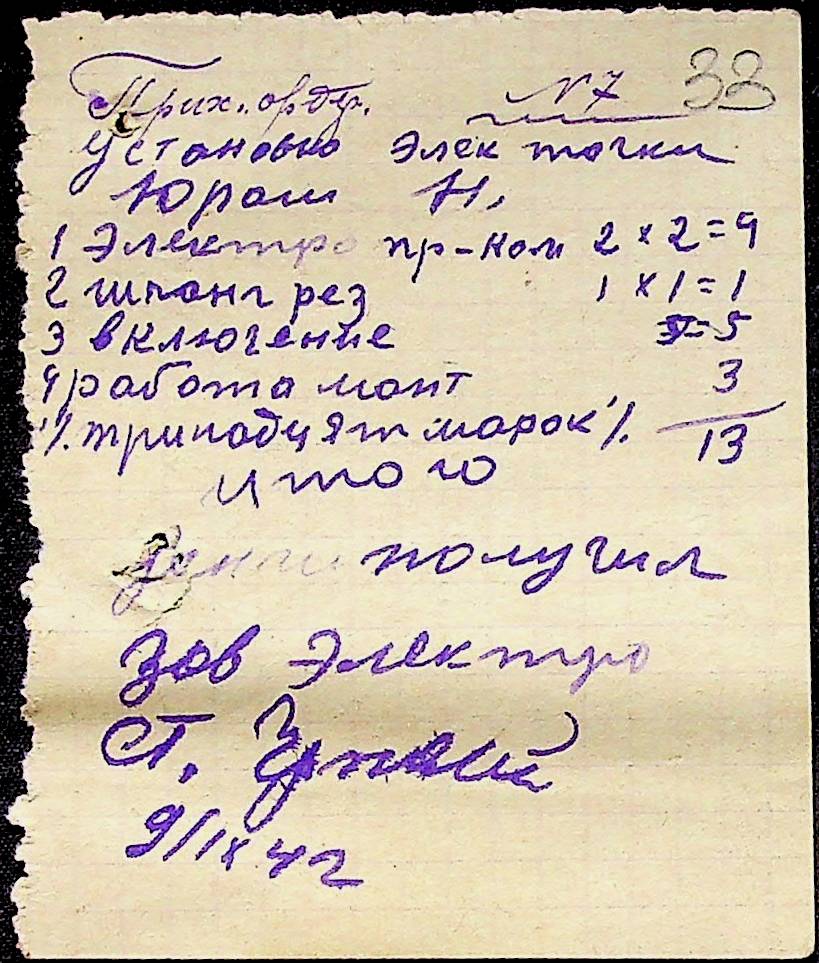 Прих. ордр. N 7 33
Установка элек точки
Юраш Н.
1 Электро пр-ком 2 x 2 = 4
2 шланг рез 1 x 1 = 1
3 включение 5
4 работа монт 3
./. тринадцят марок ./. 13
итого
Деньги получил
Зав Электро
Ст.
9/IX 42